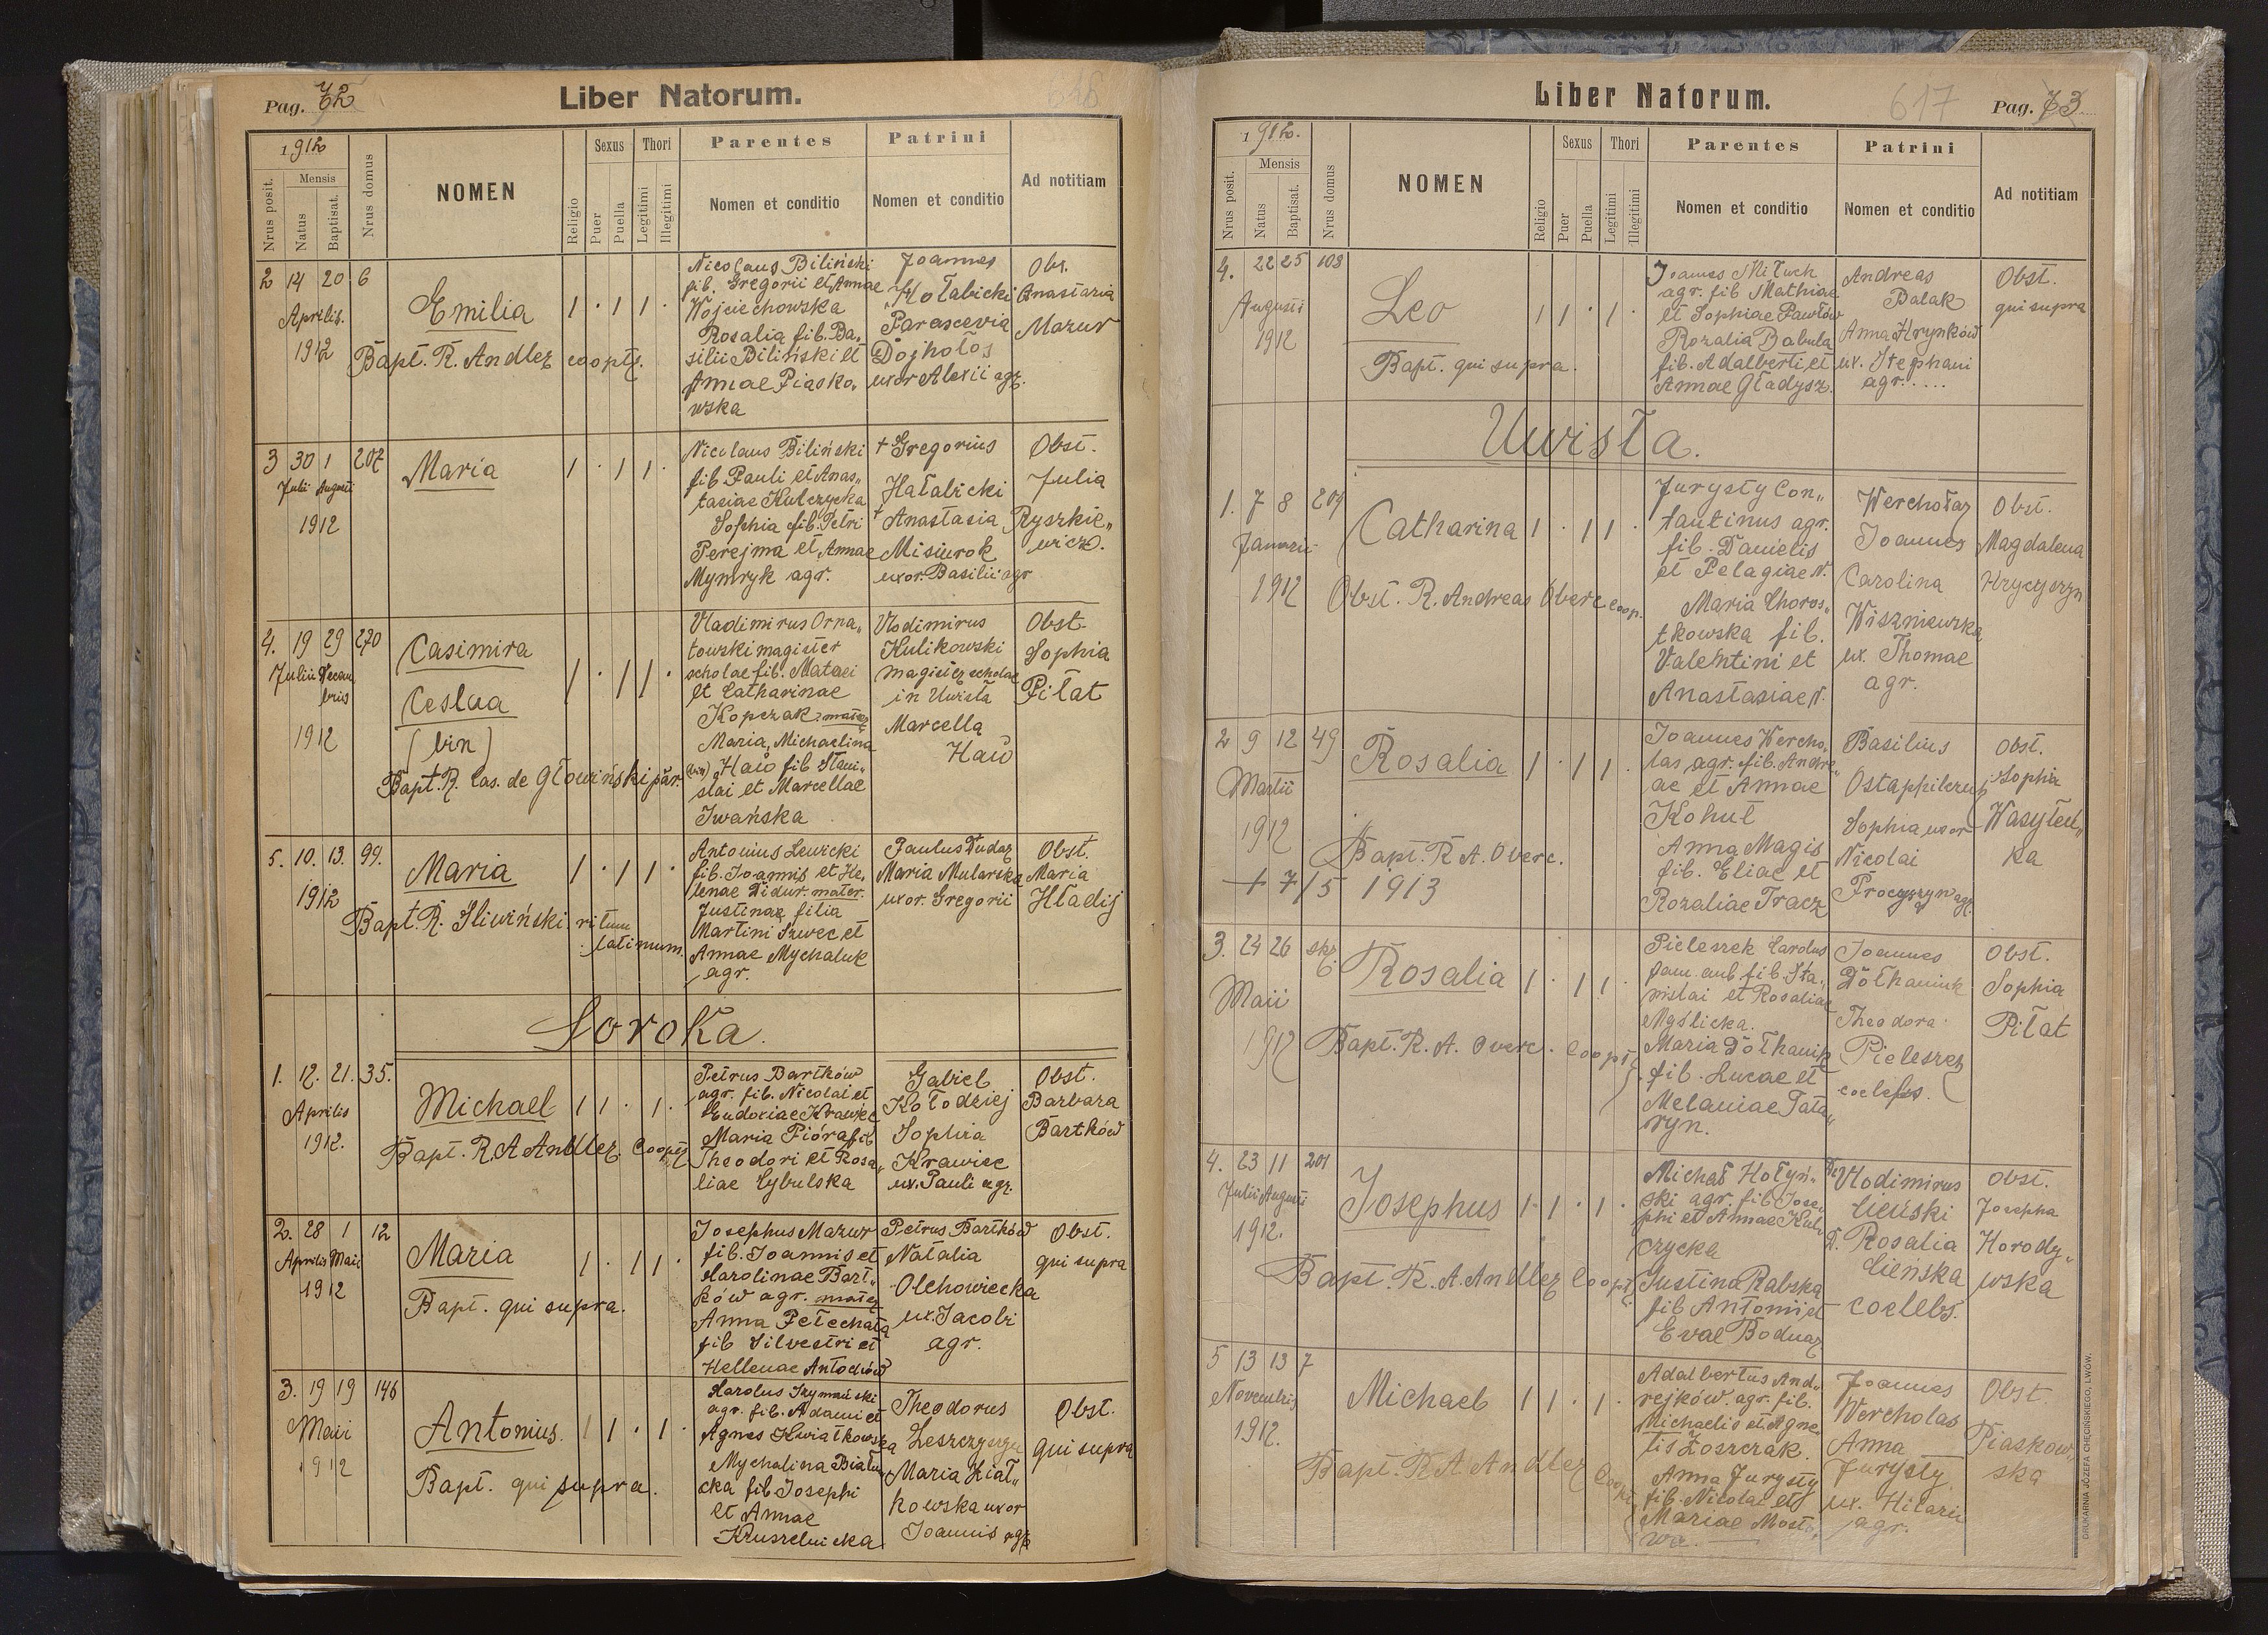 Pag. 72
Liber Natorum.
1912
Nrus posit.
Mensis
Natus
Baptisat.
Nrus domus
NOMEN
Religio
Sexus
Puer
Puella
Thori
Legitimi
Illegitimi
Parentes
Nomen et conditio
Patrini
Nomen et conditio
Ad notitiam
2 14 20 6
Aprilis.
1912
Emilia
Bapt. R. Andlez coopts.
Nicolaus Biliński
fil. Gregorii et Annae
Wojciechowska
Rosalia fil. Ba„
silii Biliński et
Annae Piasko„
wska
Joannes
Hołabicki
Parascevia
Dojholos
uxor Alexii agr.
Obs.
Anastazia
Mazur
3 30 1 207
Julii Augusti
1912
Maria
Nicolaus Biliński
fil. Pauli et Anas„
tasiae Kulczycka
Sophia fil. Petri
Perejma et Annae
Mymryk agr.
+ Gregorius
Hałabicki
+ Anastasia
Misiurok
uxor. Basilii agr
Obst.
Julia
Ryszkie„
wicz.
4. 19 29 270
Julii Decem
bris
1912
Casimira
Ceslaa
(bin)
Bapt. R. Cas. de Głowiński par.
Vladimirus Orna„
towski magister
scholae fil. Mataei
et Catharinae
Kopczak. mater
Maria, Michaelina
(bin) Haio fil Stani„
slai et Marcellae
Iwańska
Vlodimirus
Kulikowski
magister scholae
in Uwisła
Marcella
Haio
Obst.
Sophia
Piłat
5. 10. 13. 99.
1912
Maria
Bapt. R. Śliwiński ritum
latinum.
Antonius Lewicki
fil. Joannis et He„
lenae Didur. mater.
Justinae filia
Martini Szwec et
Annae Mychaluk
agr.
Paulus Dudaz
Maria Mularska
uxor. Gregorii
Obst.
Maria
Hładij
Soroka.
1. 12. 21. 35.
Aprilis
1912.
Michael
Bapt. R. A Andlez. Coopts
Petrus Bartków
agr. fil. Nicolai et
Eudoxiae Krawiec
Maria Pióra fil
Theodori et Rosa„
liae Cybulska
Gabiel
Kołodziej
Sophia
Krawiec
ux. Pauli agr.
Obst.
Barbara
Bartków
2. 28 1 12
Aprilis Maii
1912
Maria
Bapt. qui supra.
Josephus Mazur
fil. Joannis et
Karolinae Bart„
ków agr. mater
Anna Petechatą
fil Silvestri et
Hellenae Antodiów
Petrus Bartków
Natalia
Olchowiecka
ux. Jacobi
agr.
Obst.
qui supra
3. 19 19 146
Maii
1912
Antonius.
Bapt. qui supra.
Karolus Szymański
agr. fil. Adami et
Agnes Kwiatkowska
Mychalina
cka fil Josephi
et Annae
Kruszelnicka
Theodorus
Maria Kiat„
kowska uxor
Joannis agr
Obst.
qui supra
Liber Natorum.
617
Pag. 73
1912.
Nrus posit.
Mensis
Natus
Baptisat.
Nrus domus
NOMEN
Religio
Sexus
Puer
Puella
Thori
Legitimi
Illegitimi
Parentes
Nomen et conditio
Patrini
Nomen et conditio
Ad notitiam
4. 22 25 108
Augusti
1912
Leo
Bapt. qui supra.
Joannes Miłuch
agr. fil Mathiae
et Sophiae Pawłów
Rozalia Babula
fil. Adalberti et
Annae Gładysz.
Andreas
Balak
Anna Hrynków
ux. Stephani
agr.....
Obst.
qui supra
Uwisła.
1. 7 8 209
Januarii
1912
Catharina
Obst. R. Andreas Overc coop.
Jurysty Con„
tantinus agr.
fil. Danielis
et Pelagiae N.
Maria Choros„
tkowska fil.
Valentini et
Anastasiae N.
Werchołaz
Joannes
Carolina
Wiszniewska
ux. Thomae
agr.
Obst.
Magdalena
Hryczyszyn
2 9 12 49
Martii
1912
Rosalia
Bapt. R. A. Overc.
+ 7/5 1913
Joannes Wercho„
las agr. fil. Andre„
ae et Annae
Kohut
Anna Magis
fil. Eliae et
Rozaliae Tracz
Basilius
Sophia uxor
Nicolai
Procyszyn agr.
Obst.
Sophia
Wasyleń„
ka
3. 24 26 skr.
Maii
1912
Rosalia
Bapt. R. A. Overc. Coopt.
Pieleszek Carolus
fam. aul. fil. Sta„
nislai et Rosaliae
Myślicka.
Maria Dółhaniuk
fil. Lucae et
Melaniae Tata„
ryn.
Joannes
Dółhaniuk
Theodora
Pieleszez
coelebs.
Obst.
Sophia
Piłat
4. 23 11 201
Julii Augusti
1912.
Josephus
Bapt. R. A. Andlez Coopt.
Michał Hołyń„
ski agr. fil. Jose„
phi et Annae Kul„
czycka
Justina Rabska
fil Antonii et
Evae Bodnaz
Vlodimirus
Cieński
D. Rosalia
Cieńska
coelebs.
Obst.
Josepha
Horody„
wska
5 13 13 7
Novembris
1912.
Michael
Bapt. R A Andlez Coopt.
Adalbertus And„
rejków. agr. fil.
Michaelis et Agne„
tis Łoszczak.
Anna Jurysty
fil. Nicolai et
Mariae Mosto„
wa.
Joannes
Wercholas
Anna
Jurysty
ux. Hilarii
agr.
Obst.
Piaskow„
ska
DRUKARNIA JÓZEFA CHĘCIŃSKIEGO, LWÓW.